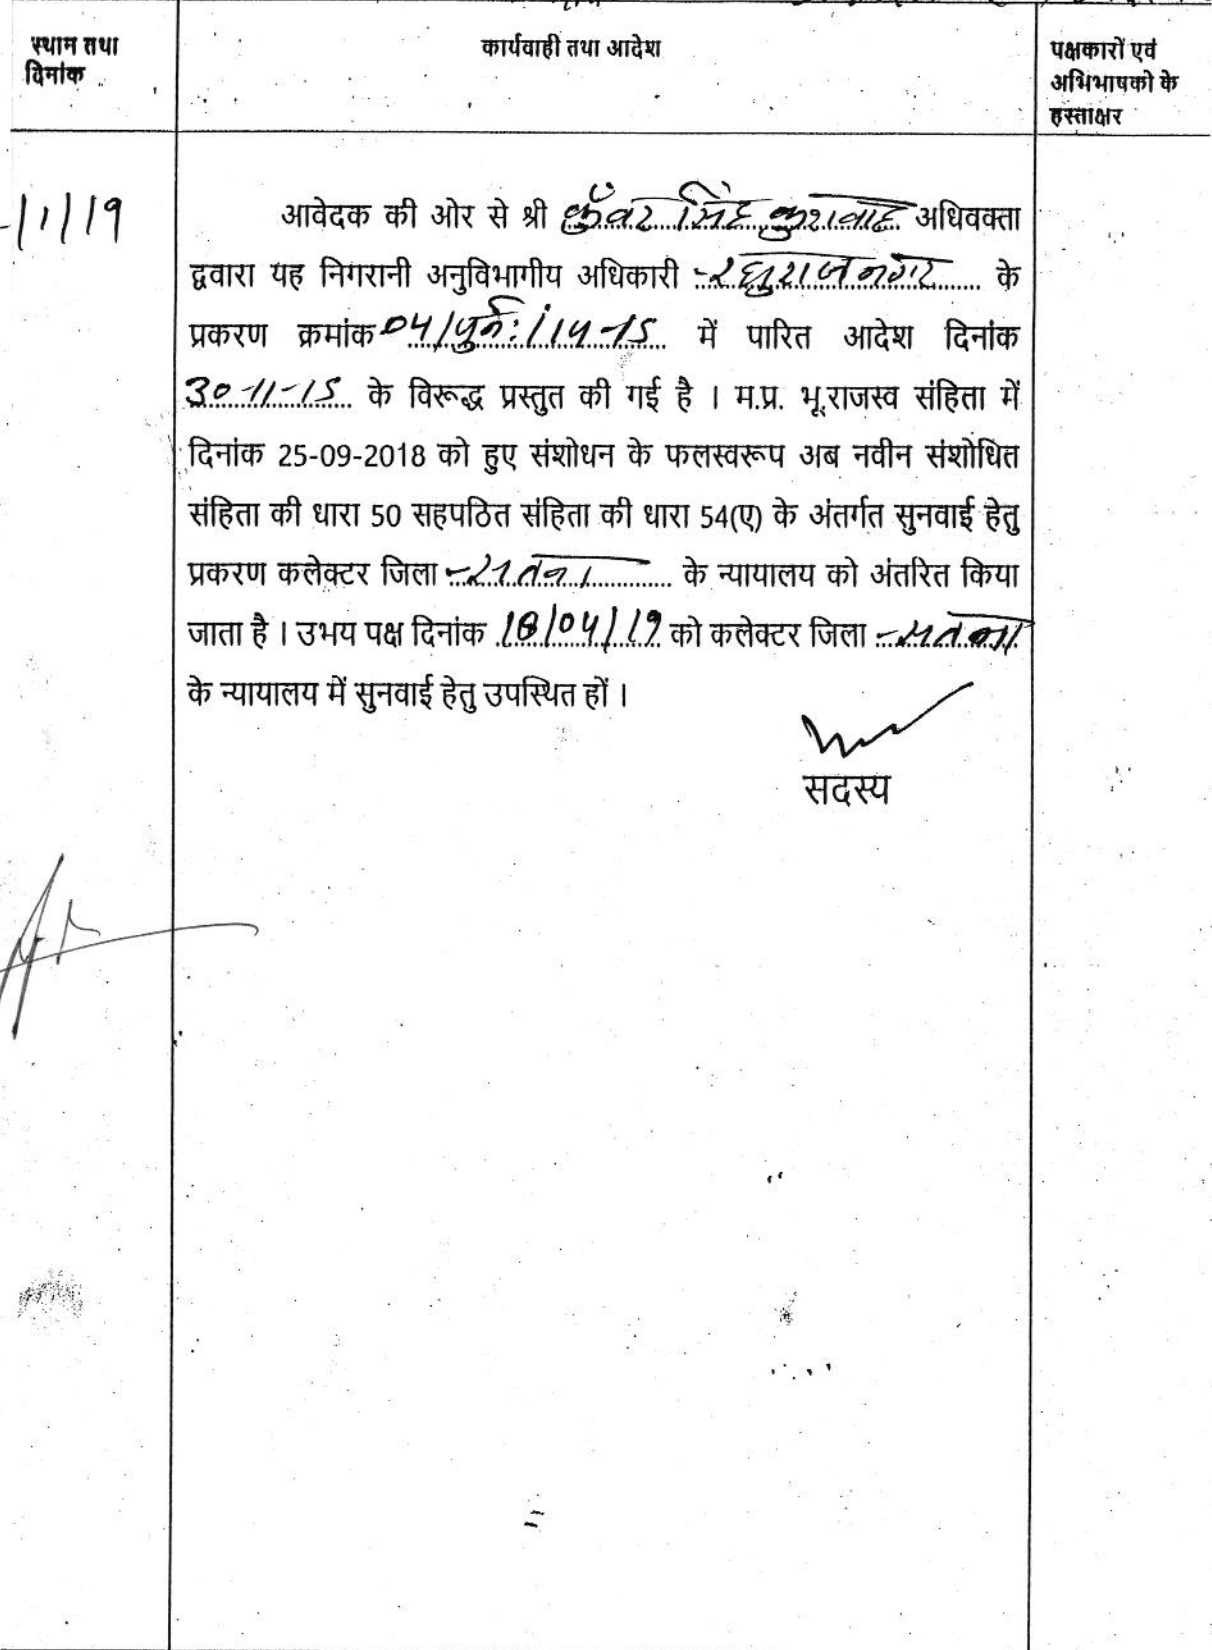 स्थान तथा
दिनांक
कार्यवाही तथा आदेश
पक्षकारों एवं
अभिभाषको के
हस्ताक्षर
/1/19
आवेदक की ओर से श्री कुँवर सिंह कुशवाह अधिवक्ता
द्ववारा यह निगरानी अनुविभागीय अधिकारी रघुराजनगर के
प्रकरण क्रमांक 04/पुर्न:/14-15 में पारित आदेश दिनांक
30-11-15 के विरूद्ध प्रस्तुत की गई है । म.प्र. भू.राजस्व संहिता में
दिनांक 25-09-2018 को हुए संशोधन के फलस्वरूप अब नवीन संशोधित
संहिता की धारा 50 सहपठित संहिता की धारा 54(ए) के अंतर्गत सुनवाई हेतु
प्रकरण कलेक्टर जिला सतना के न्यायालय को अंतरित किया
जाता है । उभय पक्ष दिनांक 18/04/19 को कलेक्टर जिला सतना
के न्यायालय में सुनवाई हेतु उपस्थित हों ।
सदस्य